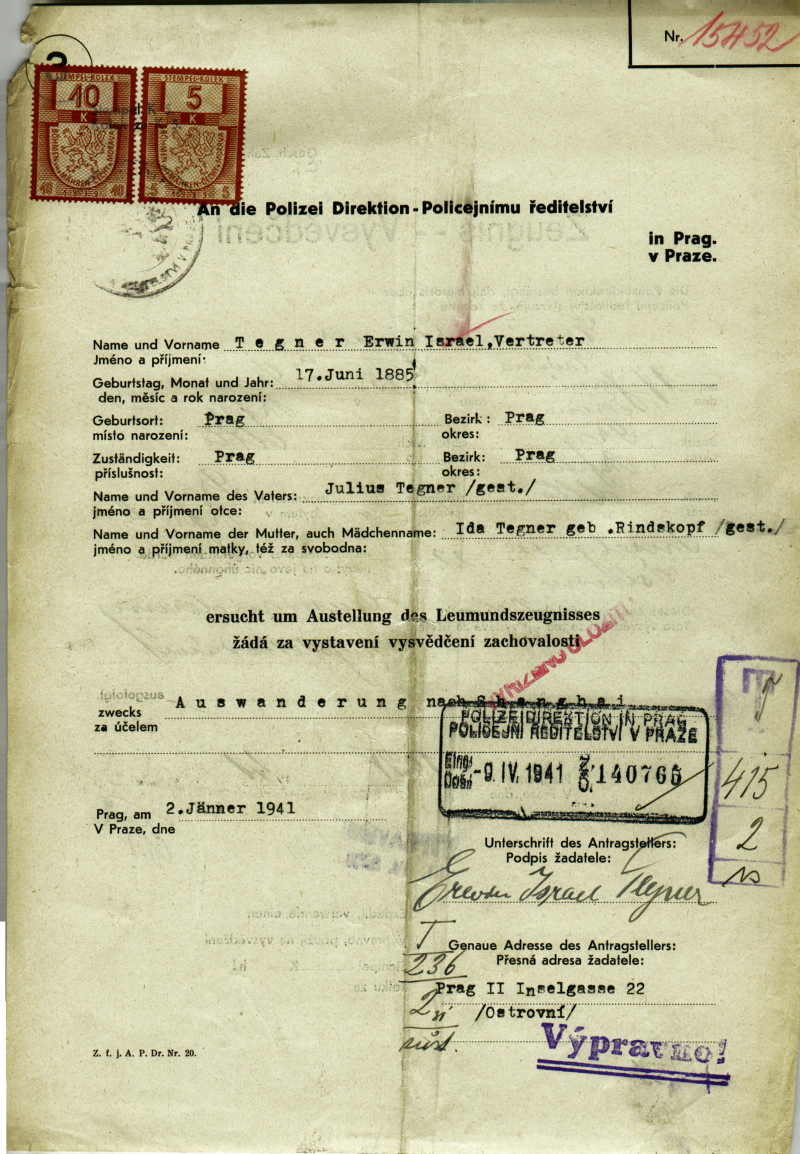 Nr. 15452
STEMPEL-KOLEK STEMPEL-KOLEK
10 5
K K
10 10 5 5
An die Polizei Direktion - Policejnímu ředitelství
in Prag.
v Praze.
Name und Vorname T e g n e r Erwin Israel,Vertreter
Jméno a příjmení:
Geburtstag, Monat und Jahr: 17.Juni 1885
den, měsíc a rok narození:
Geburtsort: Prag Bezirk: Prag
místo narození: okres:
Zuständigkeit: Prag Bezirk: Prag
příslušnost: okres:
Name und Vorname des Vaters: Julius Tegner /gest./
jméno a příjmení otce:
Name und Vorname der Mutter, auch Mädchenname: Ida Tegner geb .Rindskopf /gest./
jméno a příjmení matky, též za svobodna:
ersucht um Austellung des Leumundszeugnisses
žádá za vystavení vysvědčení zachovalosti
zwecks A u s w a n d e r u n g nach S h a n g h a i
za účelem
POLIZEIDIREKTION IN PRAG
POLICEJNÍ ŘEDITELSTVÍ V PRAZE
Eing.
Došl. -9. IV. 1941 140766
415
2
Prag, am 2.Jänner 1941
V Praze, dne
Unterschrift des Antragstellers:
Podpis žadatele:
Erwin Israel Tegner
Genaue Adresse des Antragstellers:
Přesná adresa žadatele:
236
Prag II Inselgasse 22
/Ostrovní/
Výpravno!
Z. f. j. A. P. Dr. Nr. 20.